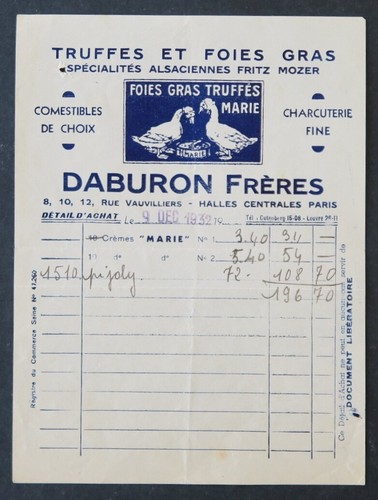 TRUFFES ET FOIES GRAS
SPÉCIALITÉS ALSACIENNES FRITZ MOZER
COMESTIBLES
DE CHOIX
FOIES GRAS TRUFFÉS
MARIE
MARIE
CHARCUTERIE
FINE
DABURON FRÈRES
8, 10, 12, RUE VAUVILLIERS - HALLES CENTRALES PARIS
DÉTAIL D'ACHAT Le 9 DEC 1932 19 Tél : Gutenberg 16-08 - Louvre
10 Crèmes "MARIE" N° 1 3.40 34 —
10 d° d° N° 2 5.40 54 —
1510 72. 108 70
196 70
Registre du Commerce Seine N° 47.260
Ce Détail d'Achat ne peut en aucun cas servir de
DOCUMENT LIBÉRATOIRE